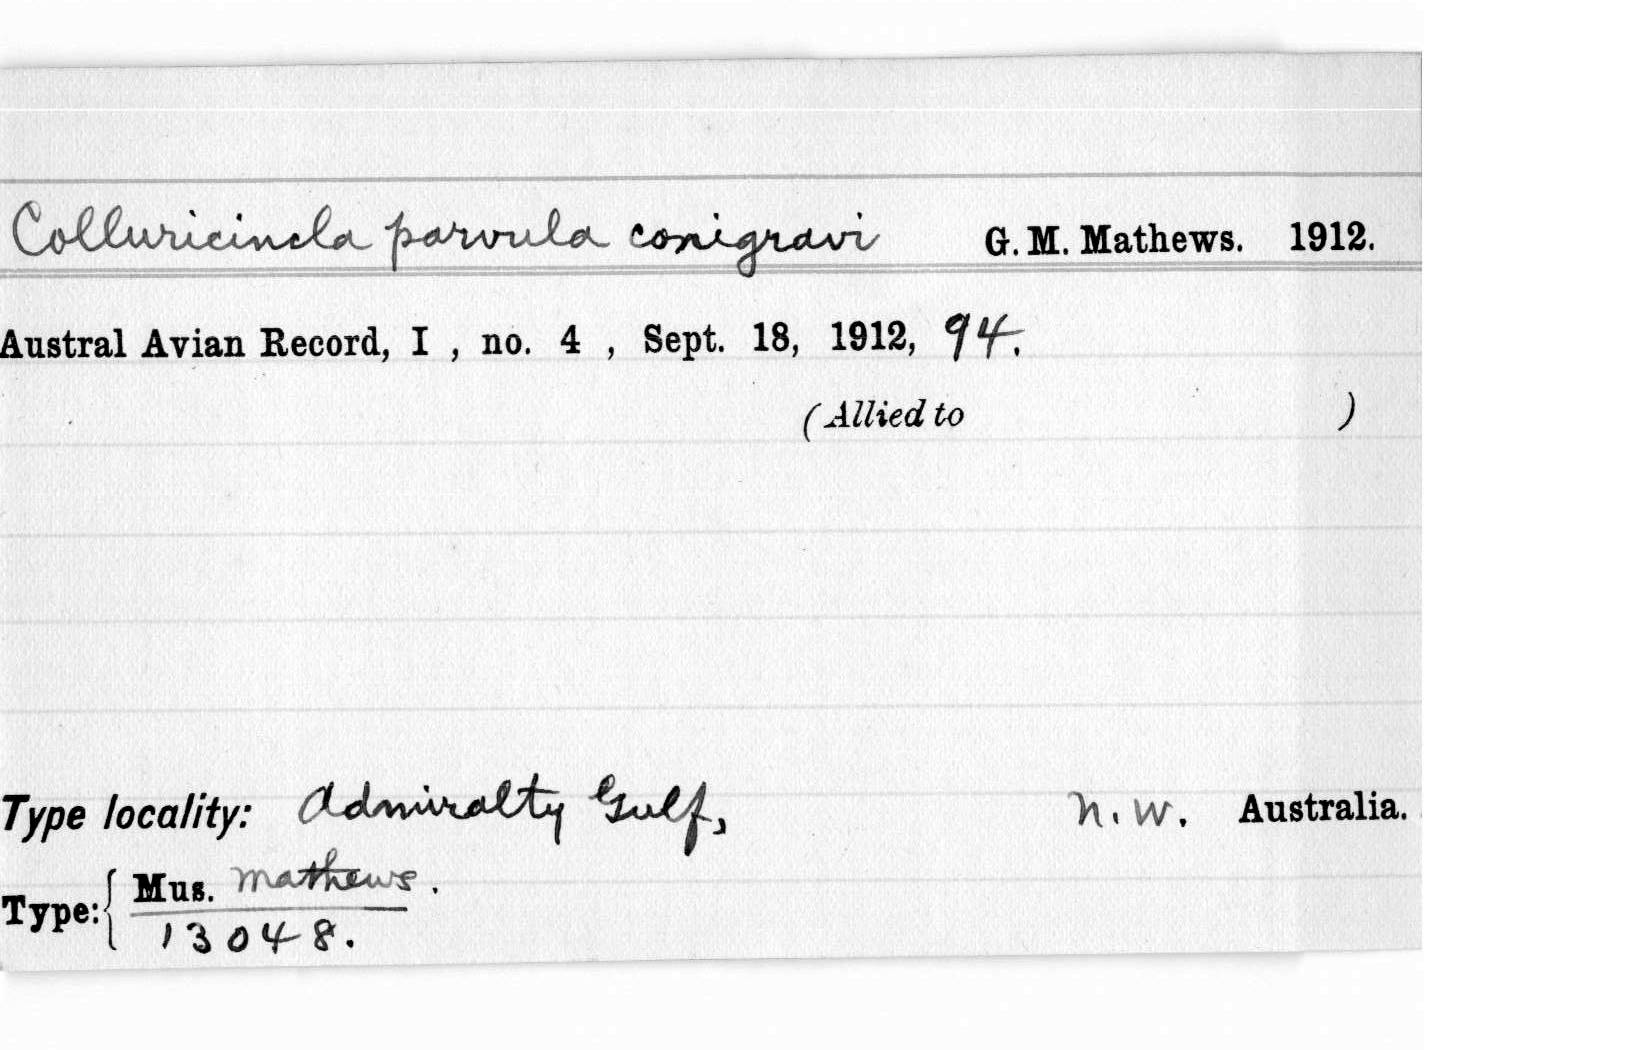 Colluricincla parvula conigravi G. M. Mathews. 1912.
Austral Avian Record, I , no. 4 , Sept. 18, 1912, 94.
(Allied to )
Type locality: Admiralty Gulf, N.W. Australia.
Type: { Mus. Mathews.
13048.